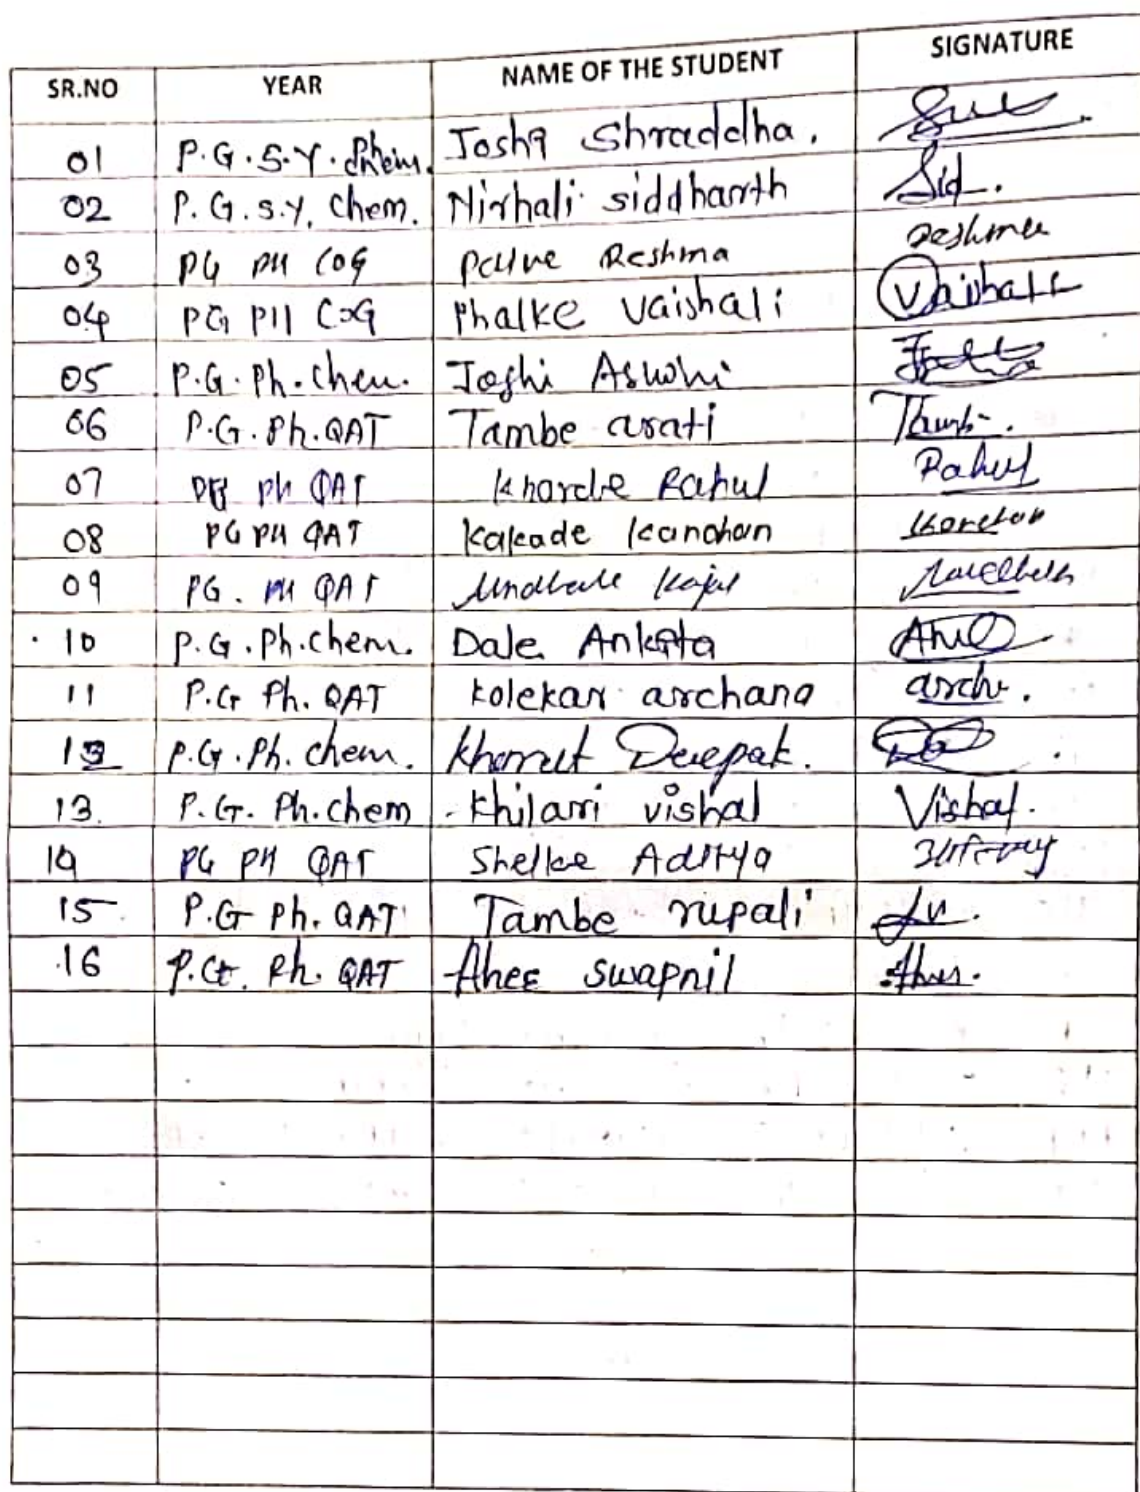 SR.NO YEAR NAME OF THE STUDENT SIGNATURE
01 P.G.S.Y. Joshi Shraddha.
02 P.G.S.Y. Chem. Nirhali siddharth Sid.
03 PG PH COG Palve Reshma Reshma
04 PG PH COG Phalke Vaishali Vaishali
05 P.G. Ph. Chem. Joshi Aswini
06 P.G. Ph. QAT Tambe arati
07 PG Ph QAT Kharde Rahul Rahul
08 PG PH QAT Kakade Kanchan
09 PG. PH QAT Kajal
10 P.G. Ph. chem. Dale Ankita
11 P.G Ph. QAT Kolekar archana arch.
12 P.G. Ph. chem. Deepak.
13 P.G. Ph. chem Khilari vishal Vishal.
14 PG PH QAT Shelke Aditya
15 P.G Ph. QAT Tambe rupali
16 P.G. Ph. QAT Aher swapnil